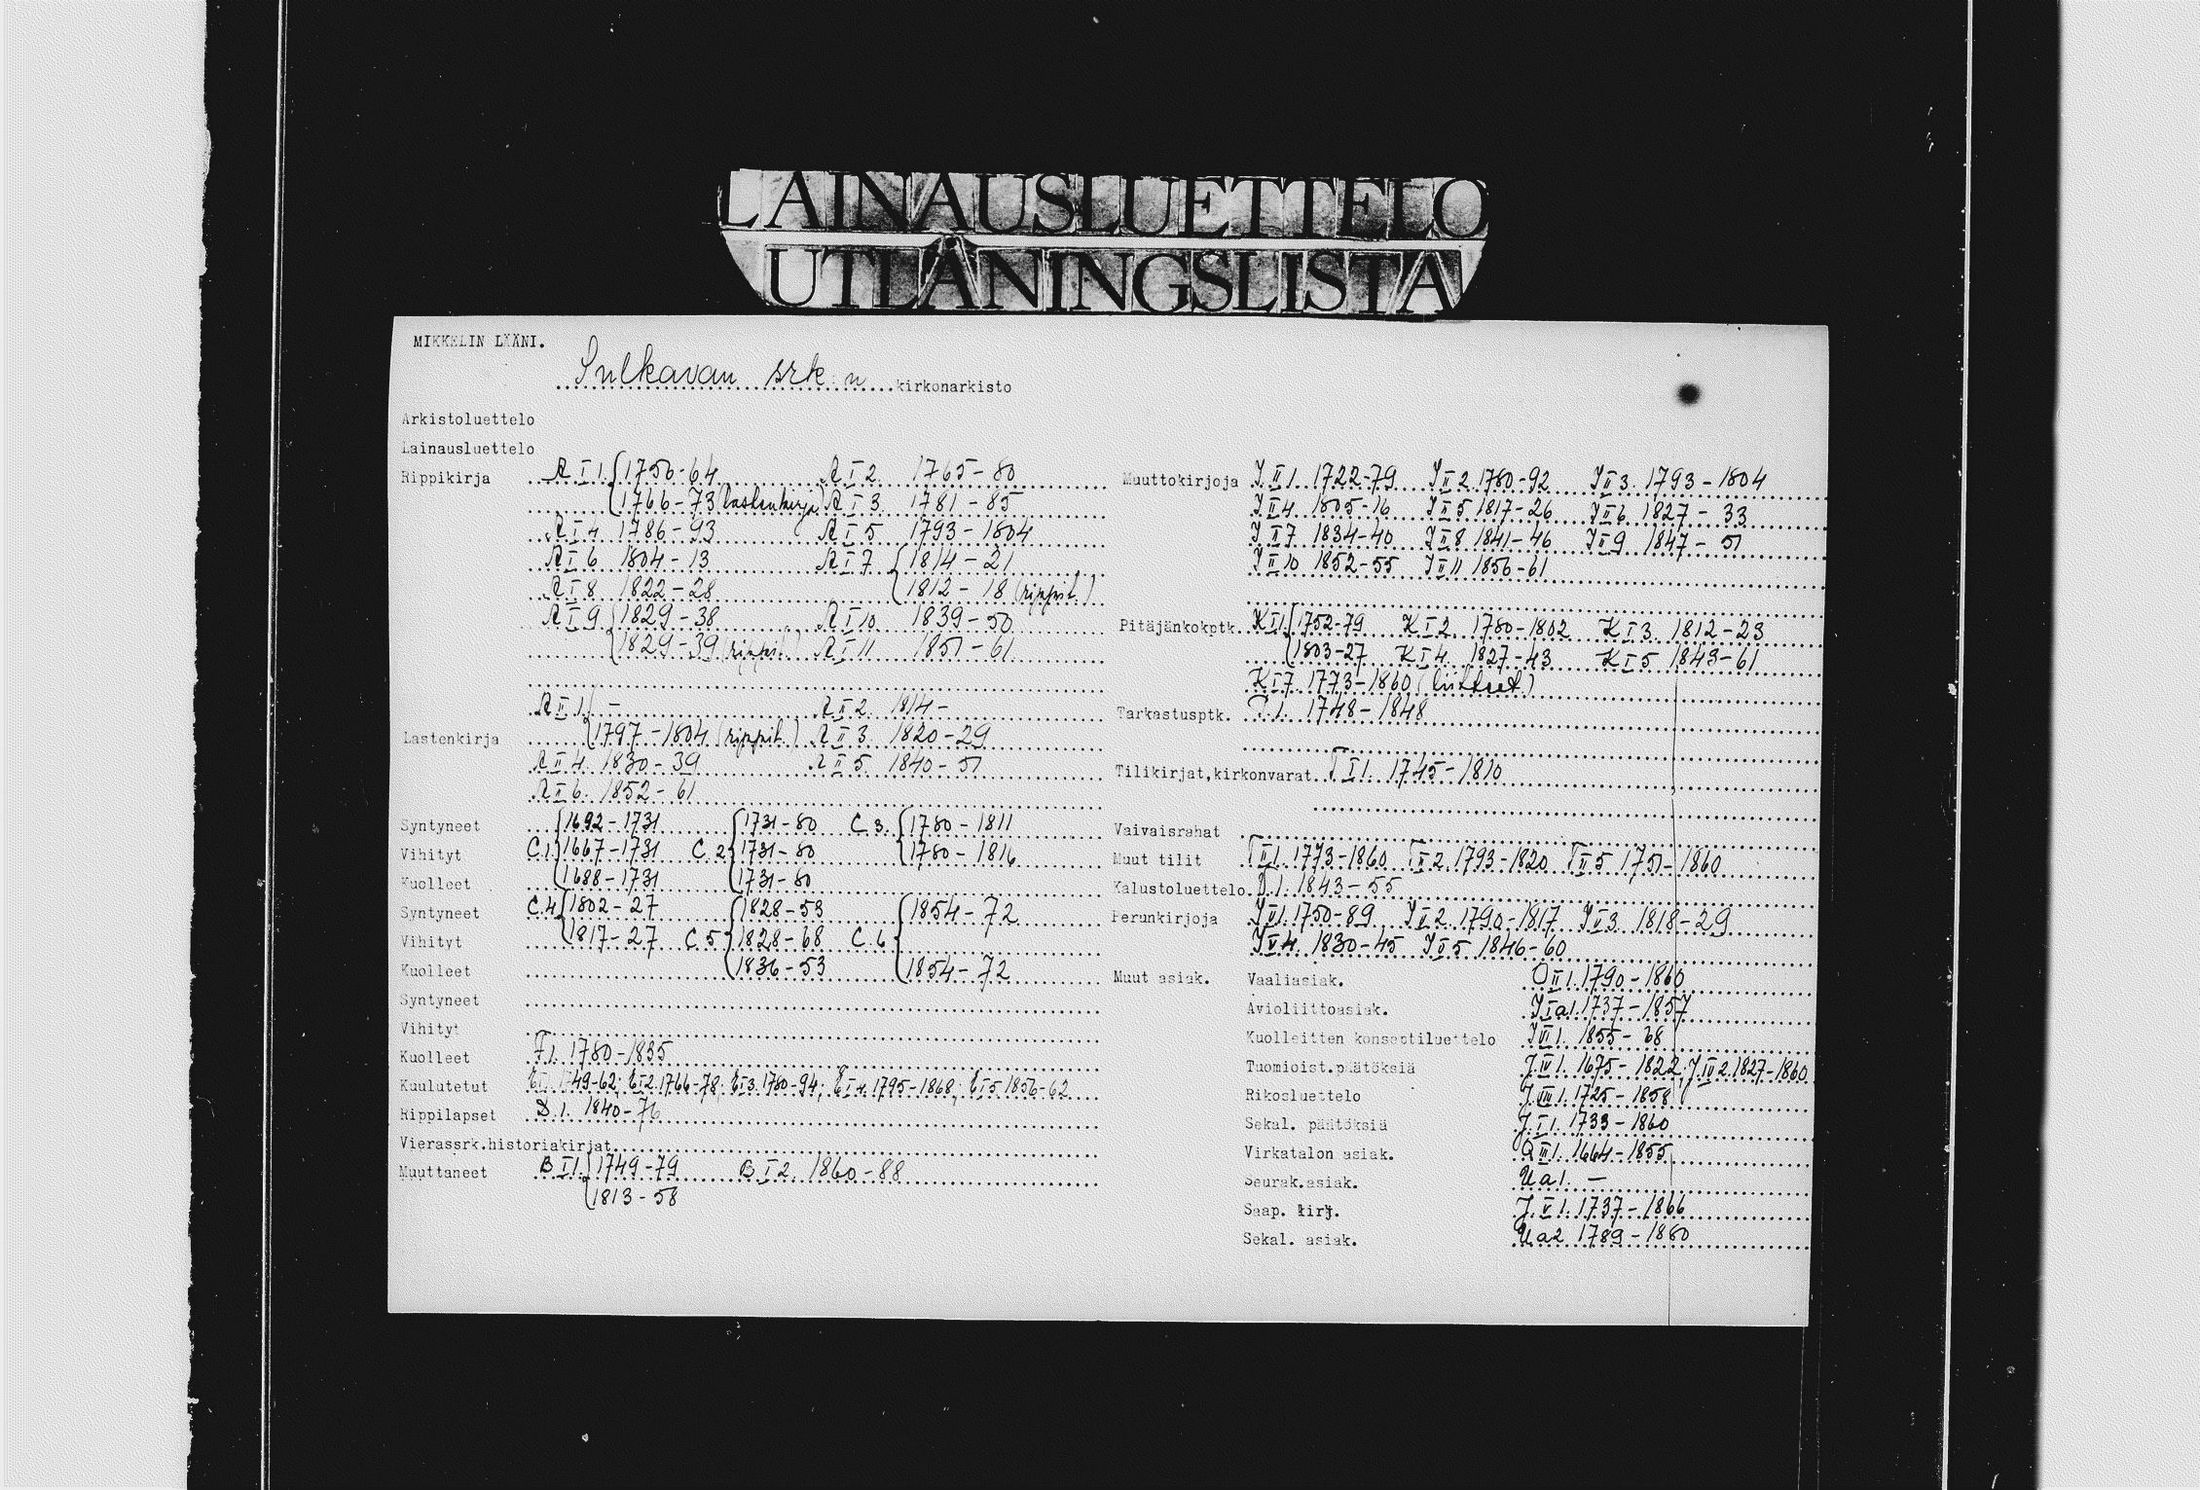 LAINAUSLUETTELO
UTLÅNINGSLISTA
MIKKELIN LÄÄNI.
Sulkavan srk:n kirkonarkisto
Arkistoluettelo
Lainausluettelo
Rippikirja A I 1. 1750-64 A I 2. 1765-80
1766-73 (lastenkirja) A I 3. 1781-85
A I 4 1786-93 A I 5 1793-1804
A I 6 1804-13 A I 7 1814-21
A I 8 1822-28 1812-18 (rippit.)
A I 9 1829-38 A I 10 1839-50
1829-39 (rippit.) A I 11 1851-61
A II 1. - A II 2. 1814-
Lastenkirja 1797-1804 (rippit.) A II 3. 1820-29
A II 4. 1830-39 A II 5. 1840-51
A II 6. 1852-61
Syntyneet 1692-1731 1731-80 C.3. 1780-1811
Vihityt C.1. 1667-1731 C.2 1731-80 1780-1816
Kuolleet 1688-1731 1731-80
Syntyneet C.4 1802-27 1828-53 1854-72
Vihityt 1817-27 C.5 1828-68 C.6
Kuolleet 1836-53 1854-72
Syntyneet
Vihityt
Kuolleet F.1. 1780-1835
Kuulutetut E I 1. 1749-62; E I 2. 1766-78; E I 3. 1780-94; E I 4. 1795-1868; E I 5 1856-62
Rippilapset D.1. 1840-76
Vierassrk.historiakirjat
Muuttaneet B I 1. 1749-79 B I 2. 1860-88
1813-58
Muuttokirjoja J II 1. 1722-79 J II 2 1780-92 J II 3. 1793-1804
J II 4 1805-16 J II 5 1817-26 J II 6 1827-33
J II 7 1834-40 J II 8 1841-46 J II 9 1847-51
J II 10 1852-55 J II 11 1856-61
Pitäjänkokptk. K I 1. 1752-79 K I 2. 1780-1802 K I 3. 1812-23
1803-27 K I 4. 1827-43 K I 5 1843-61
K I 7 1773-1860 (liitteet)
Tarkastusptk. P.1. 1748-1848
Tilikirjat,kirkonvarat. T I 1. 1745-1810
Vaivaisrahat
Muut tilit T II 1. 1773-1860 T II 2. 1793-1820 T II 5 1751-1860
Kalustoluettelo 1. 1843-55
Perunkirjoja 1750-89 1790-1817 1818-29
1830-45 1846-60
Muut asiak. Vaaliasiak. O II 1. 1790-1860
Avioliittoasiak. J I a 1. 1737-1857
Kuolleitten konseptiluettelo 1855-68
Tuomioist.päätöksiä J IV 1. 1675-1822; J IV 2. 1827-1860
Rikosluettelo J III 1. 1725-1858
Sekal. päätöksiä 1733-1860
Virkatalon asiak. 1664-1855
Seurak.asiak. U a 1. -
Saap. kirj. J V 1. 1737-1866
Sekal. asiak. U a 2 1789-1880